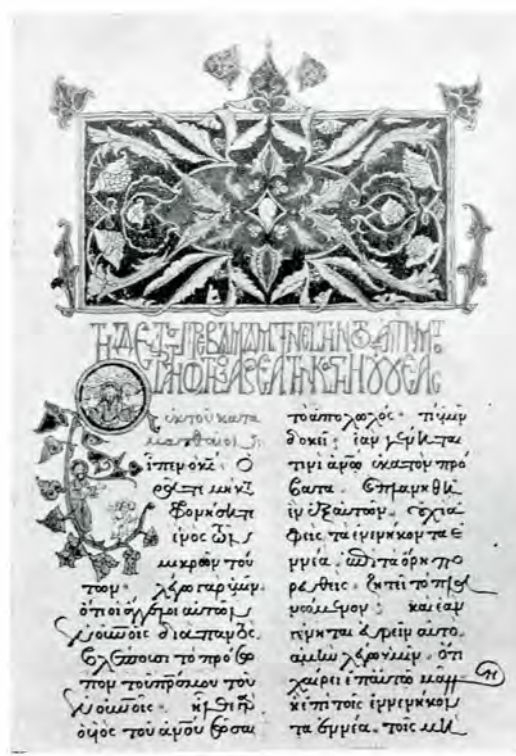 ἐκ τοῦ κατα
ματθαῖον:
Εἶπεν ὁ κ̅ς̅· Ὁ
ρᾶτε μὴ κατα
φρονήσητε
ἑνὸς τῶν
μικρῶν τού
των· λέγω γὰρ ὑμῖν·
ὅτι οἱ ἄγγελοι αὐτῶν ἐν
οὐνοῖς διαπαντὸς
βλέπουσι τὸ πρόσω
πον τοῦ πρσ μου τοῦ ἐν
οὐνοῖς· ἦλθε γὰρ
ὁ υἱὸς τοῦ ἀνου σῶσαι
τὸ ἀπολωλός· τί ὑμῖν
δοκεῖ; ἐὰν γένηται
τινι ἀνω ἑκατὸν πρό
βατα· καὶ πλανηθῇ
ἓν ἐξ αὐτῶν· οὐχὶ ἀ
φεὶς τὰ ἐνενήκοντα ἐ
ννέα· ἐπὶ τὰ ὄρη πο
ρευθεὶς· ζητεῖ τὸ πλα
νώμενον· καὶ ἐὰν
γένηται εὑρεῖν αὐτό·
ἀμὴν λέγω ὑμῖν· ὅτι
χαίρει ἐπ αὐτῶ μᾶλλον
ἢ ἐπὶ τοῖς ἐννενήκον
τα ἐννέα· τοῖς μὴ